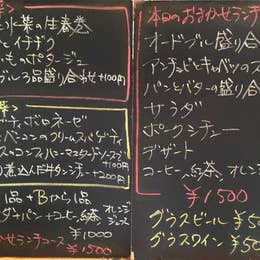 と水菜の生春巻
とイチヂク
ものポタージュ
ブル3品盛り合わせ+100円
ボロネーゼ
ベーコンのクリームスパゲティ
スのコンフィハニーマスタードソース
煮込んだ牛タンシチュー+200円
1品+Bから1品
ダ+パン+コーヒー、紅茶、オレンジジュース
¥1000
かせランチコース
¥1500
本日のおまかせランチ
オードブル盛り合
アンチョビとキャベツのス
パンとバターの盛り合
サラダ
ポークシチュー
デザート
コーヒー、紅茶、オレンジ
¥1500
グラスビール¥5
グラスワイン¥50